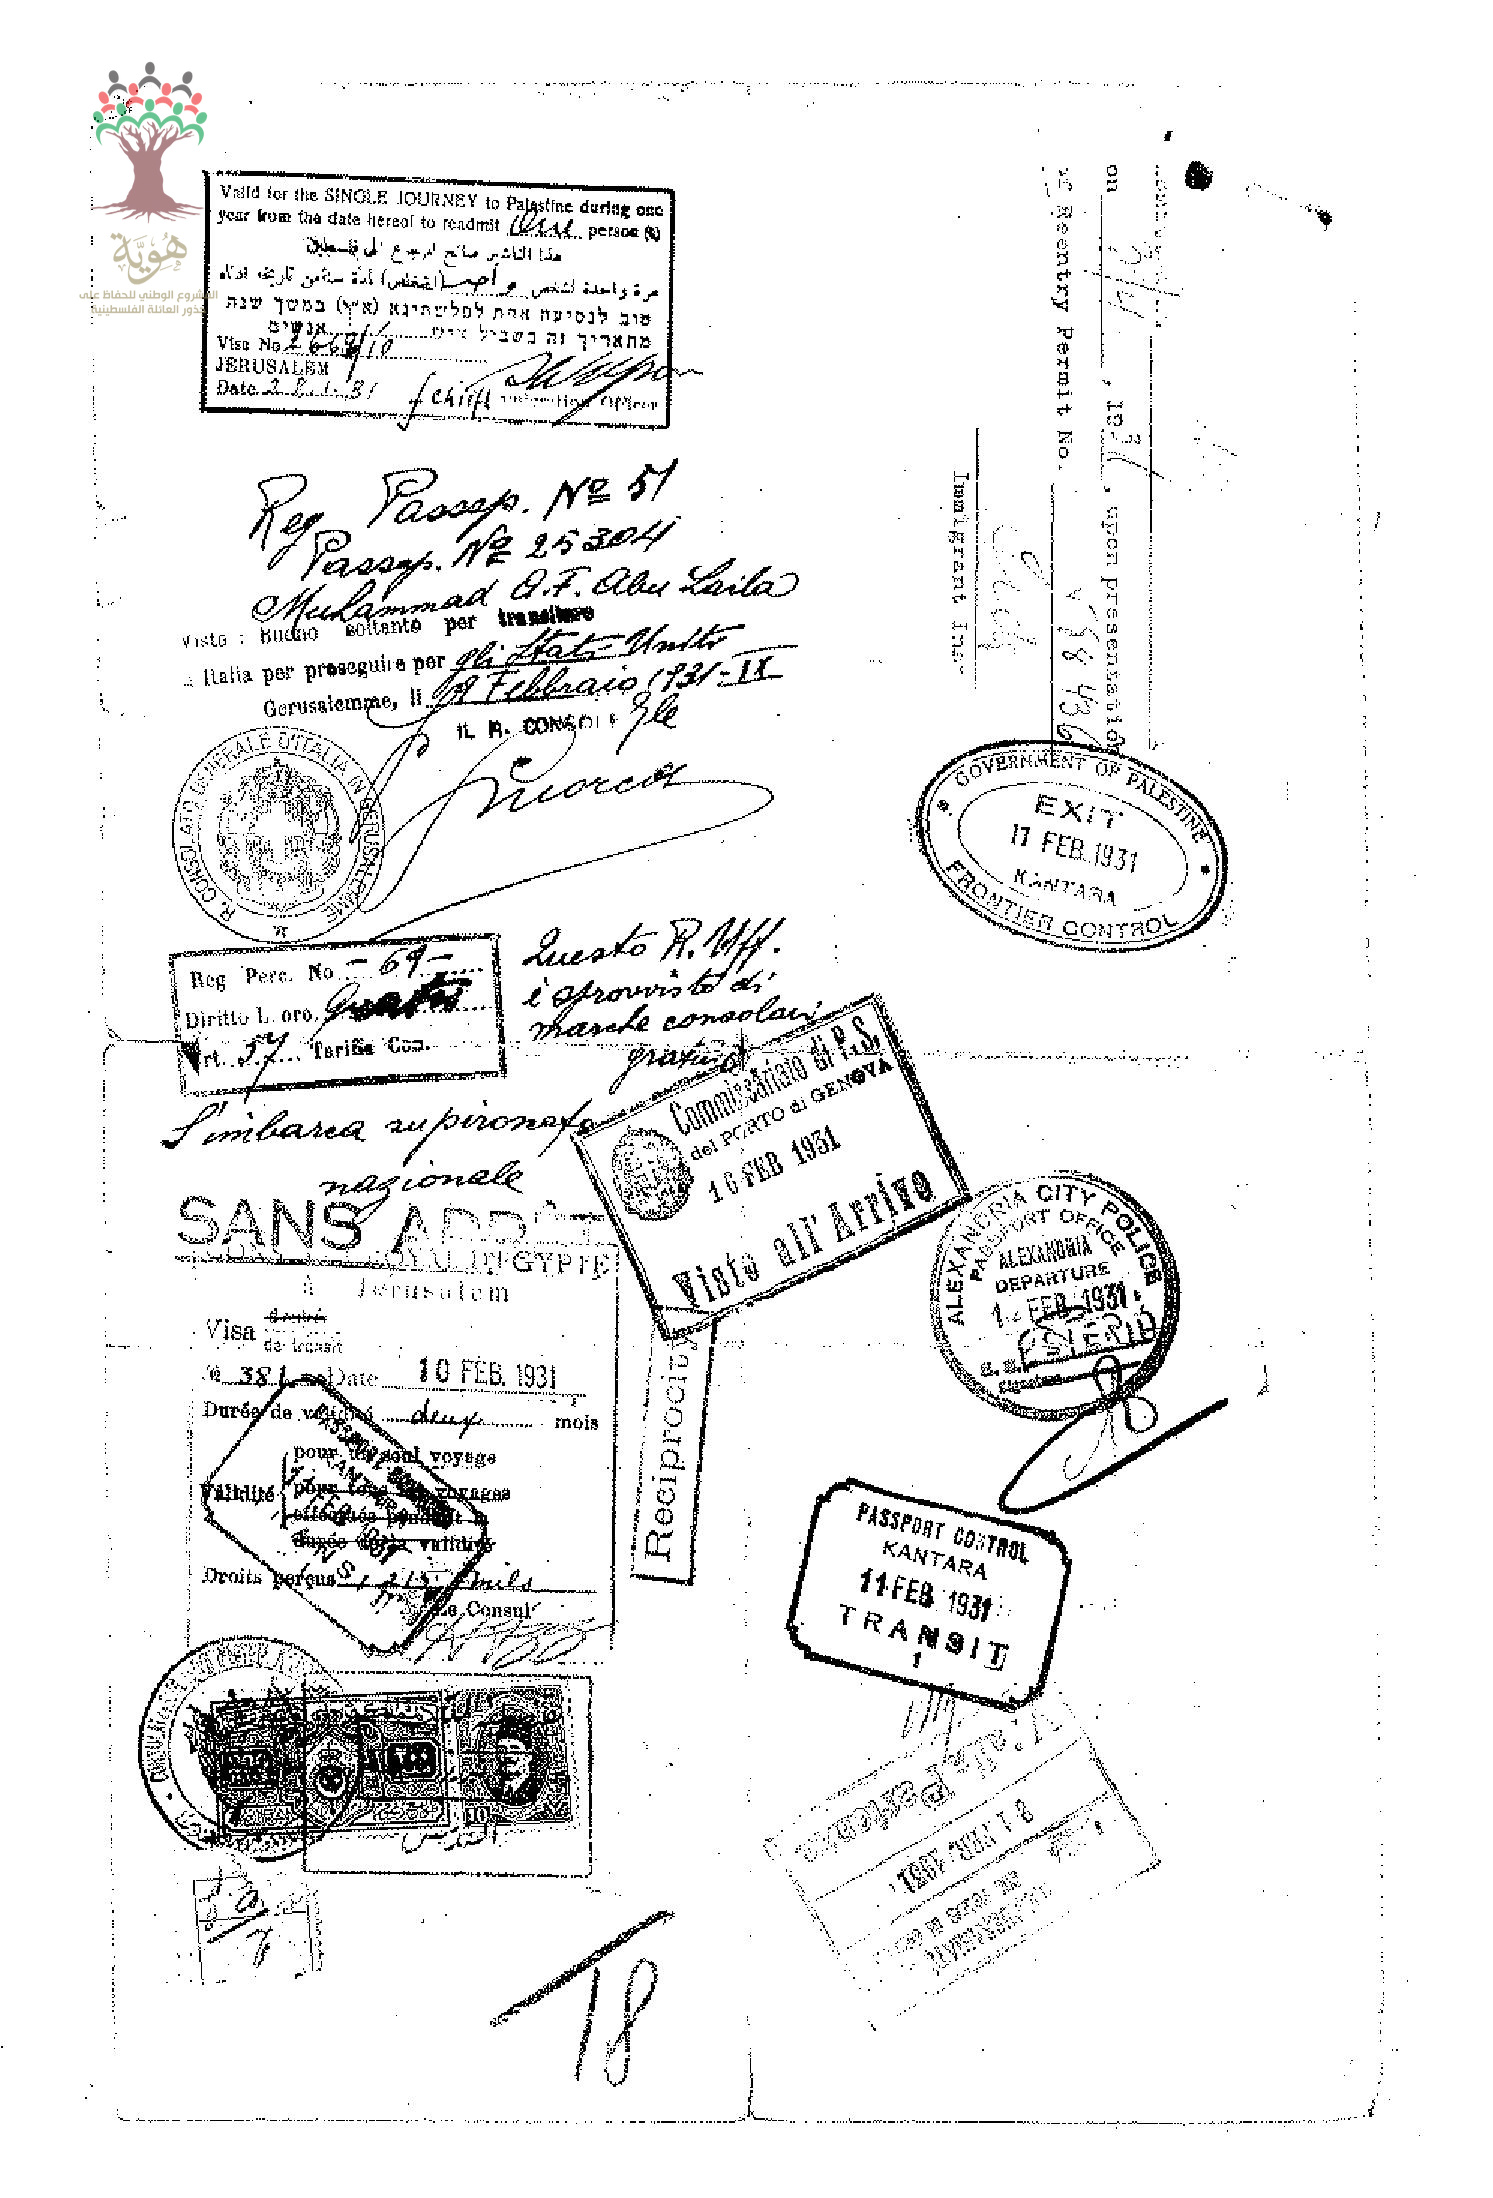 هُوِيَّة
المشروع الوطني للحفاظ على
جذور العائلة الفلسطينية
Valid for the SINGLE JOURNEY to Palestine during one
year from the date hereof to readmit One person (s)
هذا التاشير صالح لرجوع الى فلسطين
مرة واحدة لشخص واحد (اشخاص) لمدة سنة من تاريخه ادناه
טוב לנסיעה אחת לפלשתינא (א״י) במשך שנה
מתאריך זה בשביל איש אנשים
Visa No 2669/10
JERUSALEM
Date 28.1.31
Immigration Officer
Reg Passp. Nº 51
Passp. Nº 25304
Muhammad A.F. Abu Laila
Visto : Buono soltanto per transitare
Italia per proseguire per gli Stati Uniti
Gerusalemme, li 9 Febbraio 1931-IX
IL R. CONSOLE Gle
R. CONSOLATO GENERALE D'ITALIA IN GERUSALEMME
Reg Perc. No - 69 -
Diritto L. oro. Gratis
Art. 57 Tariffa Con.
Questo R. Uff.
è sprovvisto di
marche consolari
gratuito
S'imbarca su piroscafo
nazionale
Commissariato di P.S.
del PORTO di GENOVA
16 FEB 1931
Visto all'Arrivo
SANS ARRÊT
ROYAL D'EGYPTE
à Jerusalem
Visa
de transit
Nº 381 Date 10 FEB. 1931
Durée de validité deux mois
pour un seul voyage
Validité pour tous les voyages
effectués pendant la
durée de la validité
Droits perçus mils
Le Consul
Reciprocity
PASSPORT CONTROL
KANTARA
القدس
18
Reentry Permit No.
, 19 31, upon presentation
on
Immigrant Ins.
GOVERNMENT OF PALESTINE
EXIT
11 FEB. 1931
KANTARA
FRONTIER CONTROL
ALEXANDRIA CITY POLICE
PASSPORT OFFICE
ALEXANDRIA
DEPARTURE
FEB 1931
Signature
PASSPORT CONTROL
KANTARA
11 FEB 1931
TRANSIT
1